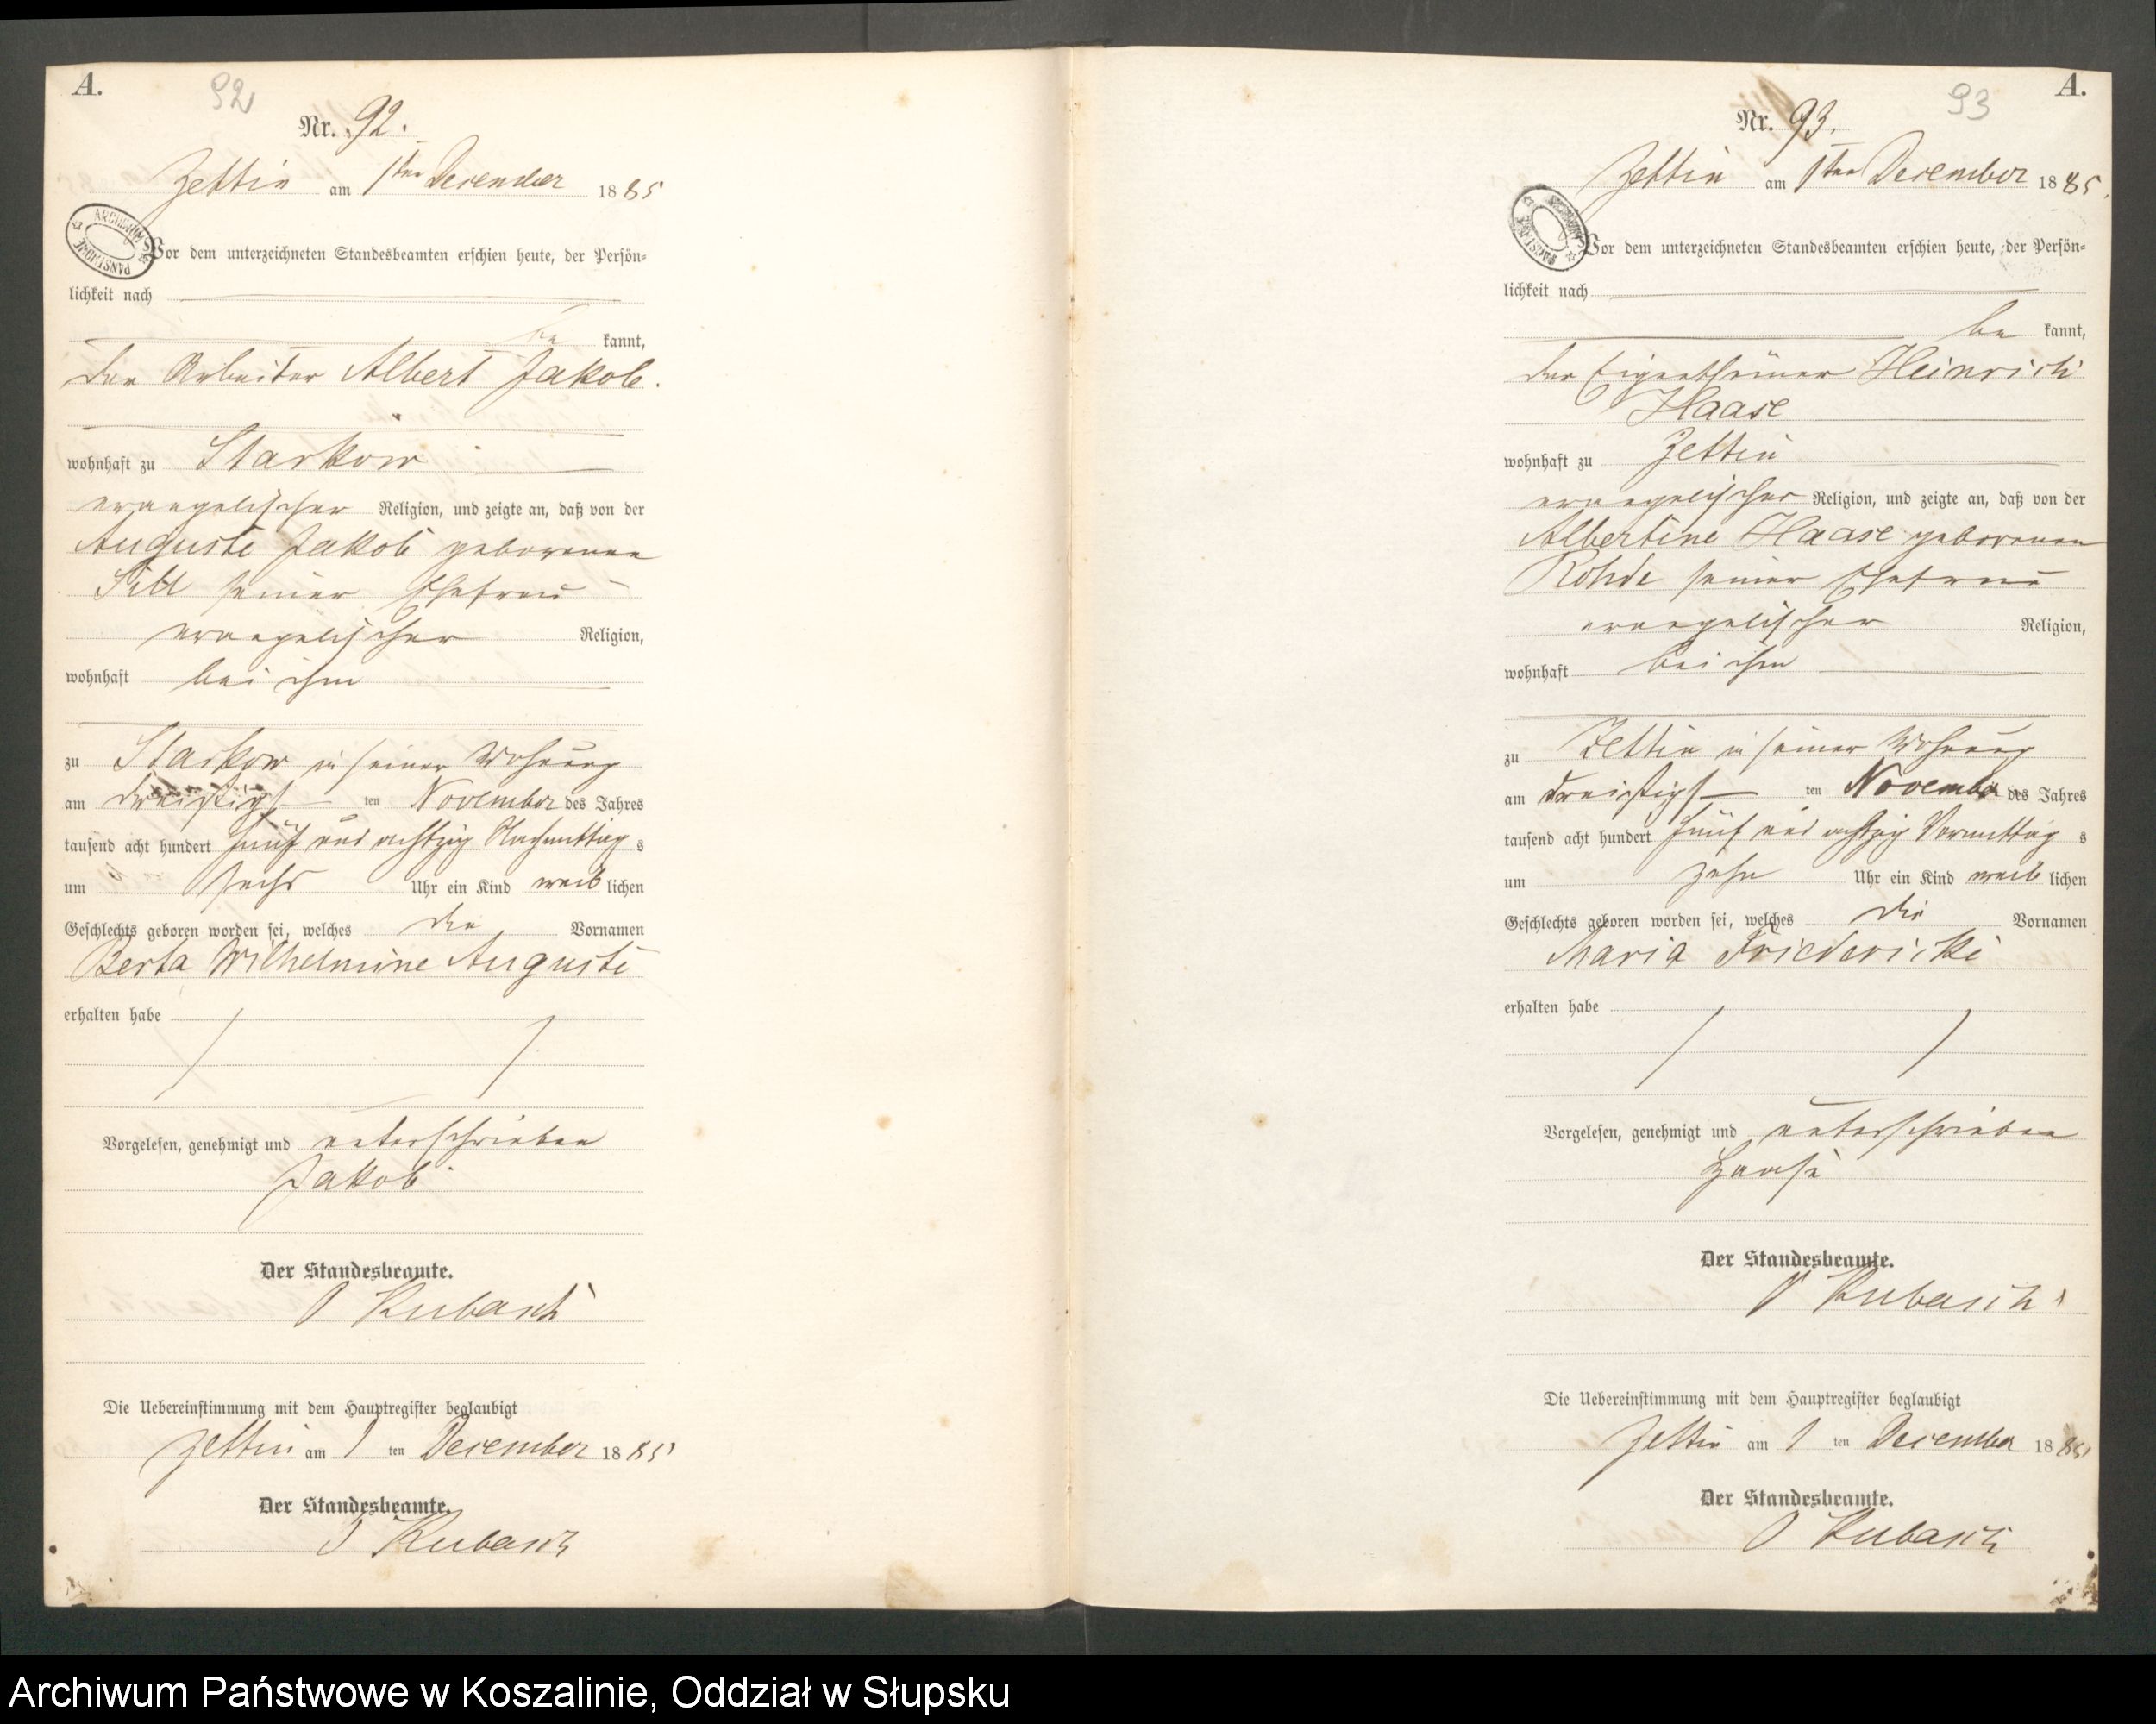 A.
92
Nr. 92.
Zettin am 1ten December 1885
Vor dem unterzeichneten Standesbeamten erschien heute, der Persön-
lichkeit nach
be kannt,
der Arbeiter Albert Jakob.
wohnhaft zu Starkow
evangelischer Religion, und zeigte an, daß von der
Auguste Jakob geborenen
Sill seiner Ehefrau
evangelischer Religion,
wohnhaft bei ihm
zu Starkow in seiner Wohnung
am dreißigst ten November des Jahres
tausend acht hundert fünf und achtzig Nachmittag s
um sechs Uhr ein Kind weib lichen
Geschlechts geboren worden sei, welches die Vornamen
Berta Wilhelmine Auguste
erhalten habe
Vorgelesen, genehmigt und unterschrieben
Jakob
Der Standesbeamte.
Kubasch
Die Uebereinstimmung mit dem Hauptregister beglaubigt
Zettin am 1 ten December 1885
Der Standesbeamte.
Kubasch
A.
93
Nr. 93.
Zettin am 1ten December 1885.
Vor dem unterzeichneten Standesbeamten erschien heute, der Persön-
lichkeit nach
be kannt,
der Eigenthümer Heinrich
Haase
wohnhaft zu Zettin
evangelischer Religion, und zeigte an, daß von der
Albertine Haase geborenen
Rohde seiner Ehefrau
evangelischer Religion,
wohnhaft bei ihm
zu Zettin in seiner Wohnung
am dreißigst ten November des Jahres
tausend acht hundert fünf und achtzig Vormittag s
um zehn Uhr ein Kind weib lichen
Geschlechts geboren worden sei, welches die Vornamen
Maria Friedericke
erhalten habe
Vorgelesen, genehmigt und unterschrieben
Haase
Der Standesbeamte.
Kubasch
Die Uebereinstimmung mit dem Hauptregister beglaubigt
Zettin am 1 ten December 1885
Der Standesbeamte.
Kubasch
Archiwum Państwowe w Koszalinie, Oddział w Słupsku